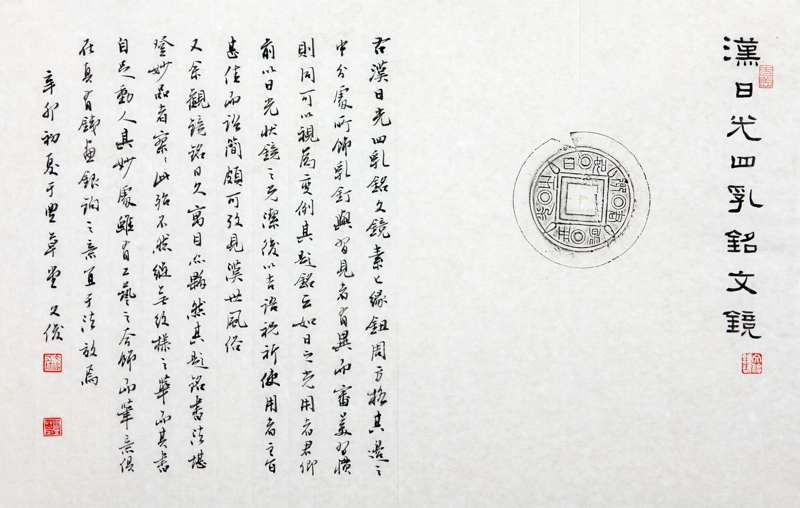 漢日光四乳銘文鏡
右漢日光四乳銘文鏡素緣鈕周方格其邊之
中分處所飾乳釘與習見者有異而審美習慣
則同可以視為變例其題銘云如日之光用者君卿
前以日光狀鏡之光潔後以吉語祝祈使用者之
甚佳而語簡頗可攷見漢世風俗
又余觀鏡銘日久寓目亦夥然其題銘書法堪
登妙品者寥〻此殆不然縱無紋樣之華而其書
自足動人其妙處雖有工藝之夸飾而筆意俱
在真有鐵畫銀鉤之意直于法放焉
辛卯初夏于豐草堂文俊